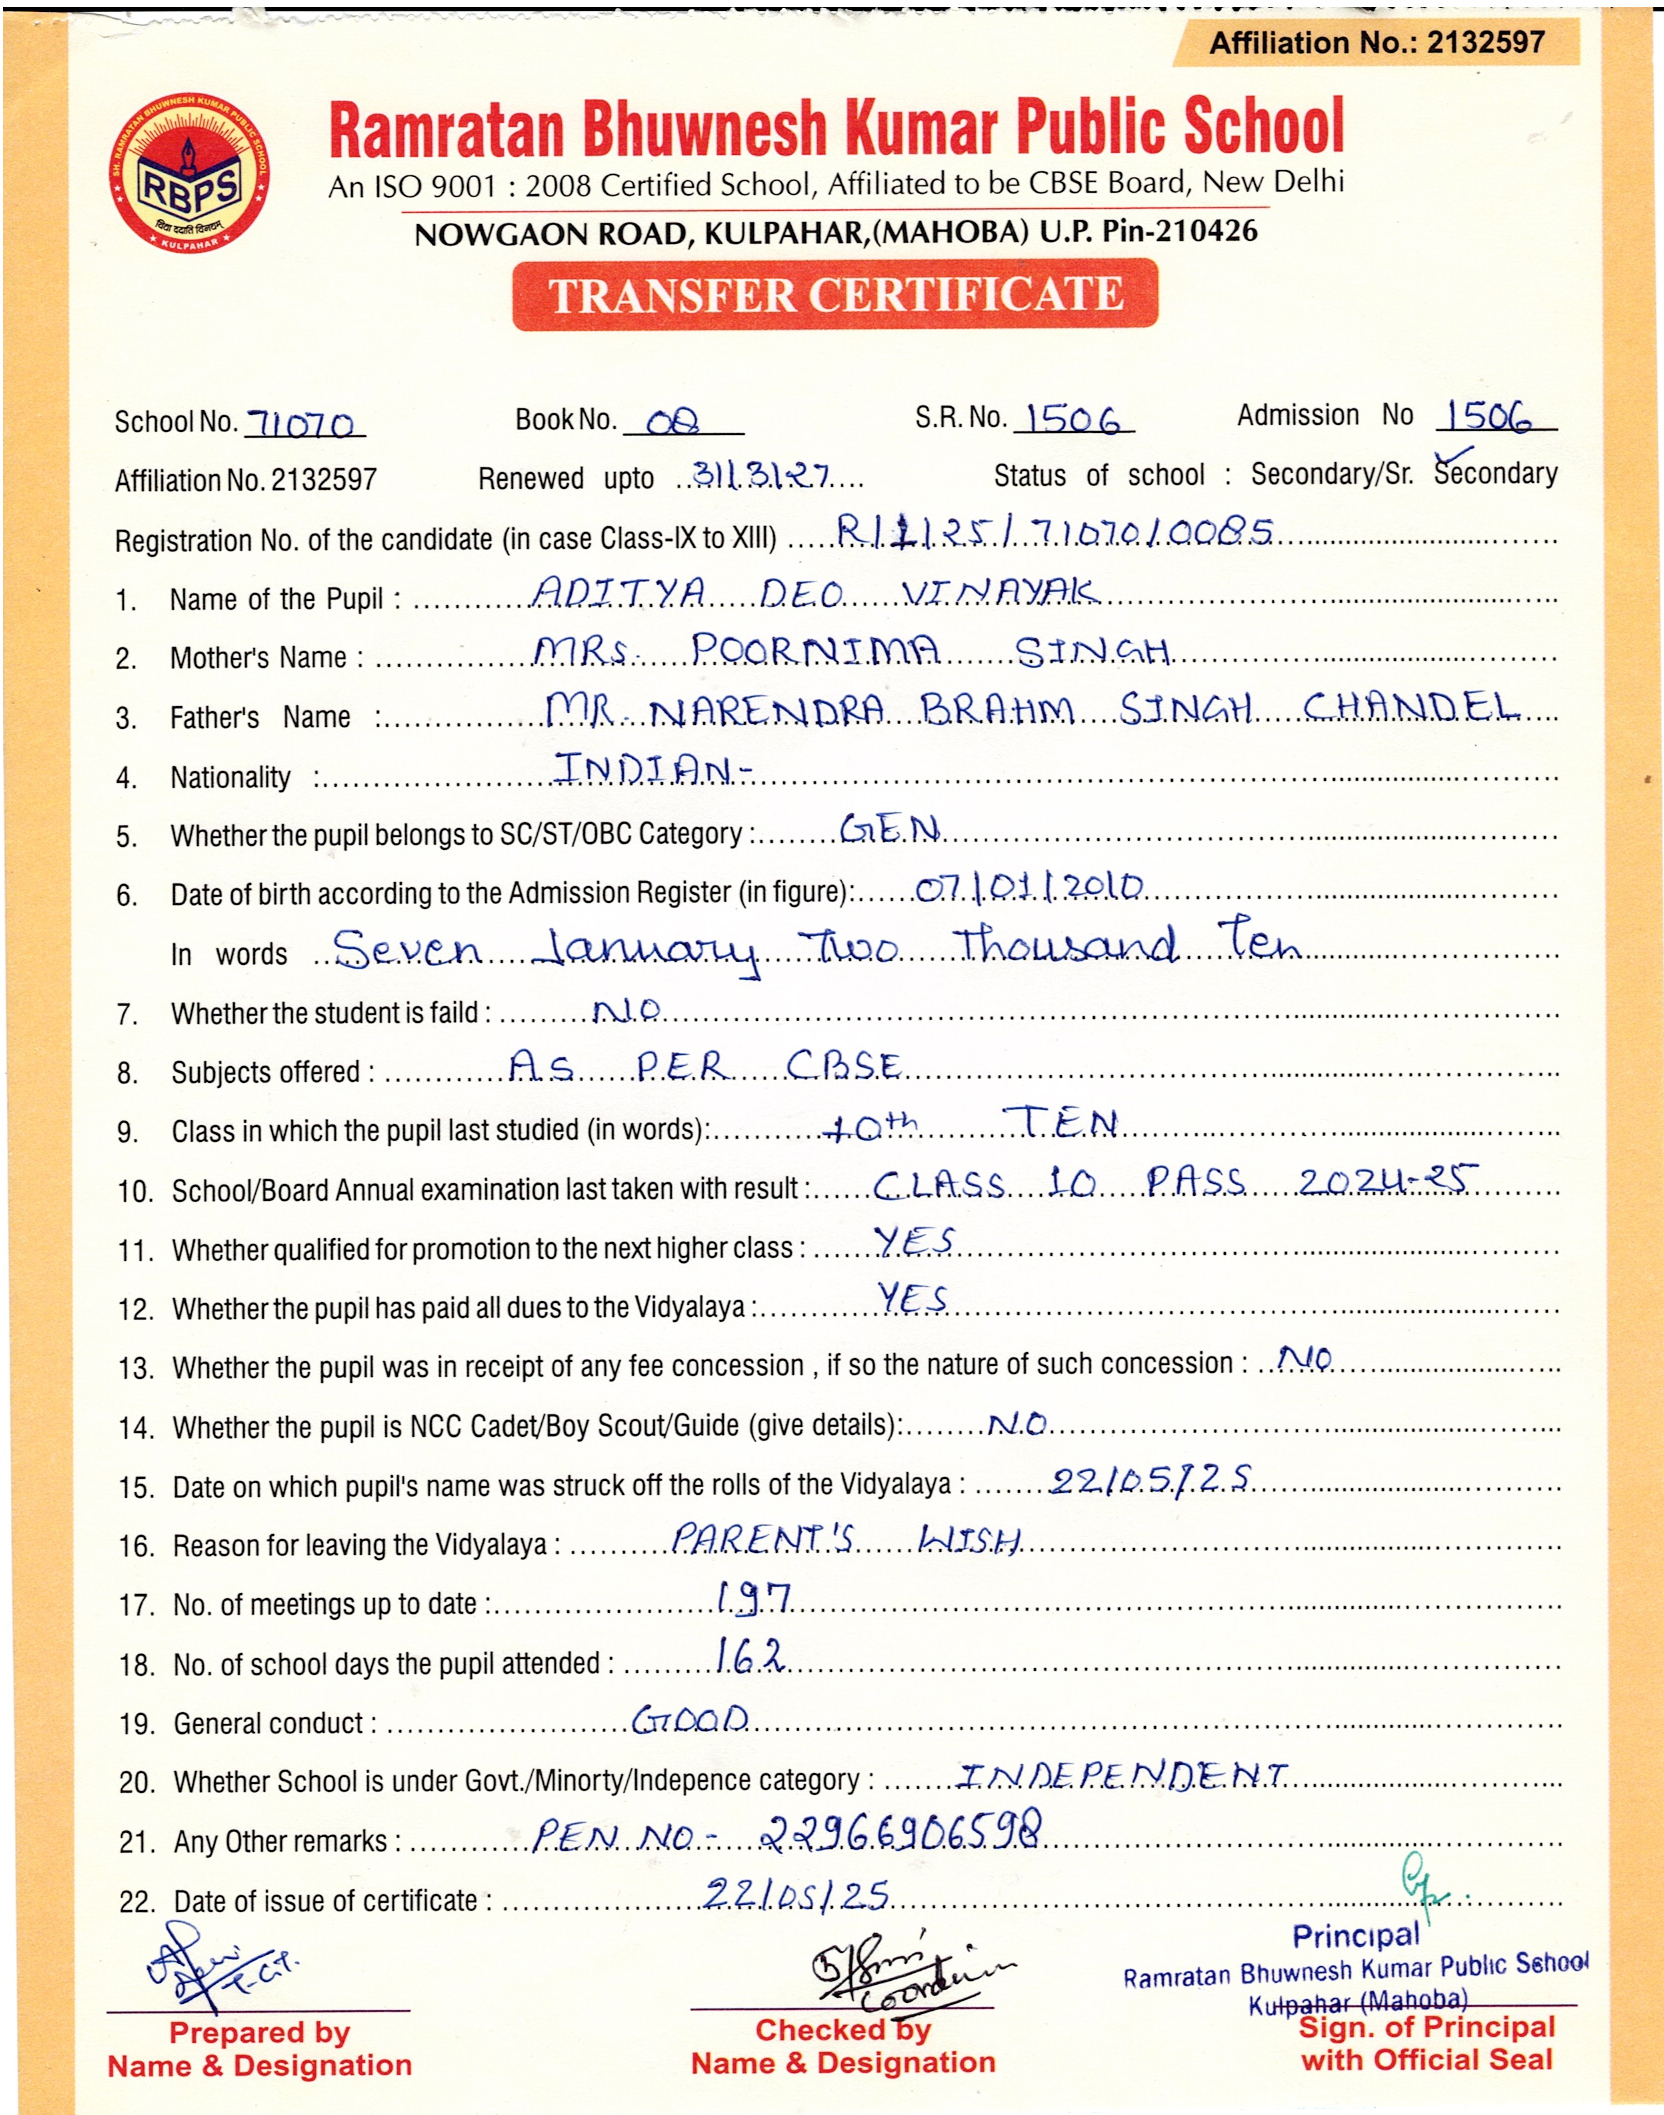 Affiliation No.: 2132597
SH. RAMRATAN BHUWNESH KUMAR PUBLIC SCHOOL
RBPS
विद्या ददाति विनयम्
KULPAHAR
Ramratan Bhuwnesh Kumar Public School
An ISO 9001 : 2008 Certified School, Affiliated to be CBSE Board, New Delhi
NOWGAON ROAD, KULPAHAR,(MAHOBA) U.P. Pin-210426
TRANSFER CERTIFICATE
School No. 71070 Book No. 08 S.R. No. 1506 Admission No 1506
Affiliation No. 2132597 Renewed upto 31/3/27 Status of school : Secondary/Sr. Secondary
Registration No. of the candidate (in case Class-IX to XIII) R/1/25/71070/0085
1. Name of the Pupil : ADITYA DEO VINAYAK
2. Mother's Name : MRS. POORNIMA SINGH
3. Father's Name : MR. NARENDRA BRAHM SINGH CHANDEL
4. Nationality : INDIAN-
5. Whether the pupil belongs to SC/ST/OBC Category : GEN
6. Date of birth according to the Admission Register (in figure): 07/01/2010
In words Seven January Two Thousand Ten
7. Whether the student is faild : NO
8. Subjects offered : AS PER CBSE
9. Class in which the pupil last studied (in words): 10th TEN
10. School/Board Annual examination last taken with result : CLASS 10 PASS 2024-25
11. Whether qualified for promotion to the next higher class : YES
12. Whether the pupil has paid all dues to the Vidyalaya : YES
13. Whether the pupil was in receipt of any fee concession , if so the nature of such concession : NO
14. Whether the pupil is NCC Cadet/Boy Scout/Guide (give details): NO
15. Date on which pupil's name was struck off the rolls of the Vidyalaya : 22/05/25
16. Reason for leaving the Vidyalaya : PARENT'S WISH
17. No. of meetings up to date : 197
18. No. of school days the pupil attended : 162
19. General conduct : GOOD
20. Whether School is under Govt./Minorty/Indepence category : INDEPENDENT
21. Any Other remarks : PEN NO- 22966906598
22. Date of issue of certificate : 22/05/25
Principal
Ramratan Bhuwnesh Kumar Public School
Kulpahar (Mahoba)
Prepared by Checked by Sign. of Principal
Name & Designation Name & Designation with Official Seal